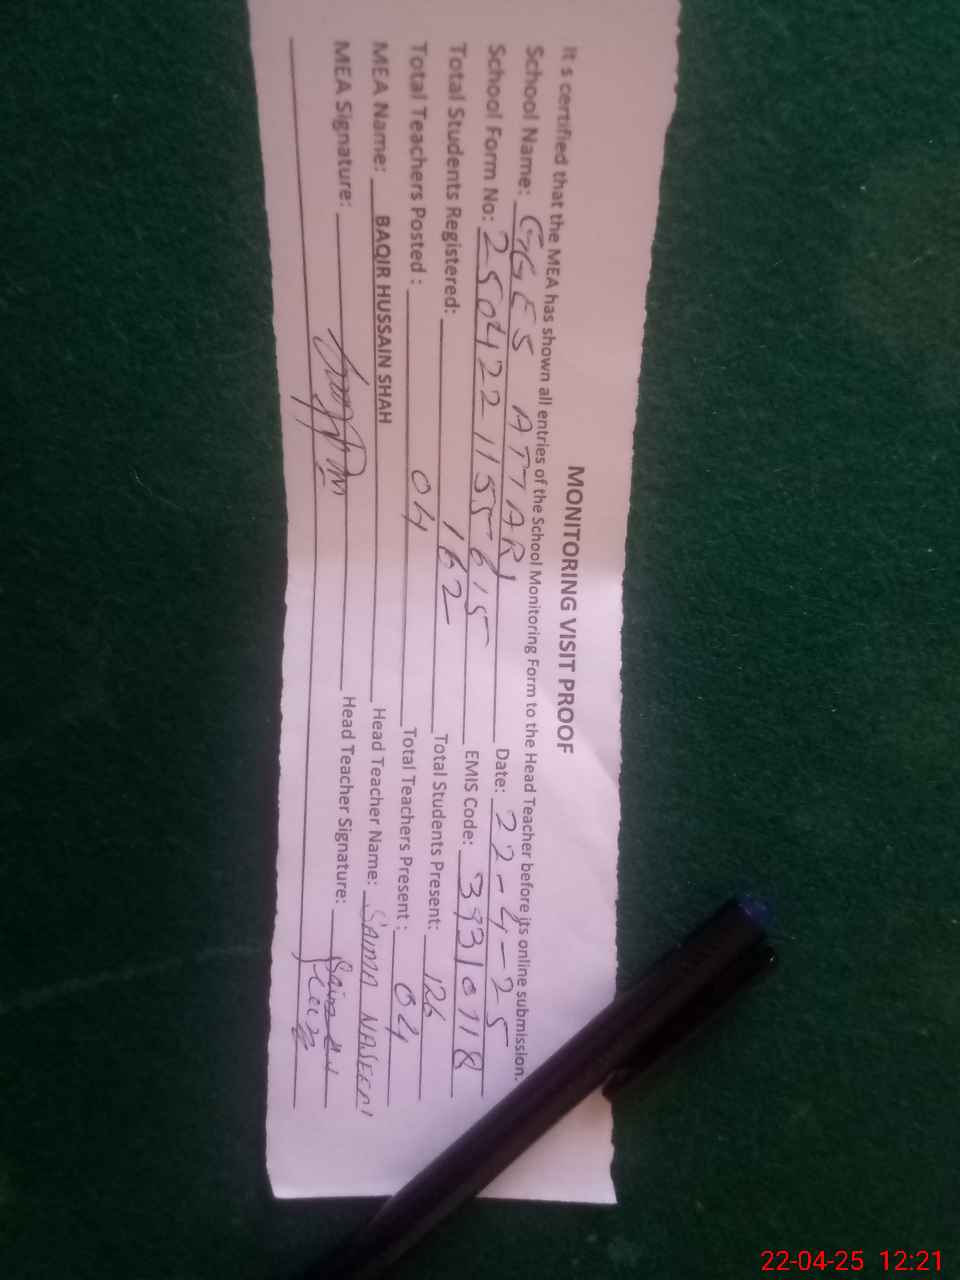 MONITORING VISIT PROOF
It s certified that the MEA has shown all entries of the School Monitoring Form to the Head Teacher before its online submission.
School Name: GGES ATTARI Date: 22-4-25
School Form No: 2504221155615 EMIS Code: 39310118
Total Students Registered: 162 Total Students Present: 126
Total Teachers Posted : 04 Total Teachers Present : 04
MEA Name: BAQIR HUSSAIN SHAH Head Teacher Name: SAIMA
MEA Signature: Head Teacher Signature:
22-04-25 12:21